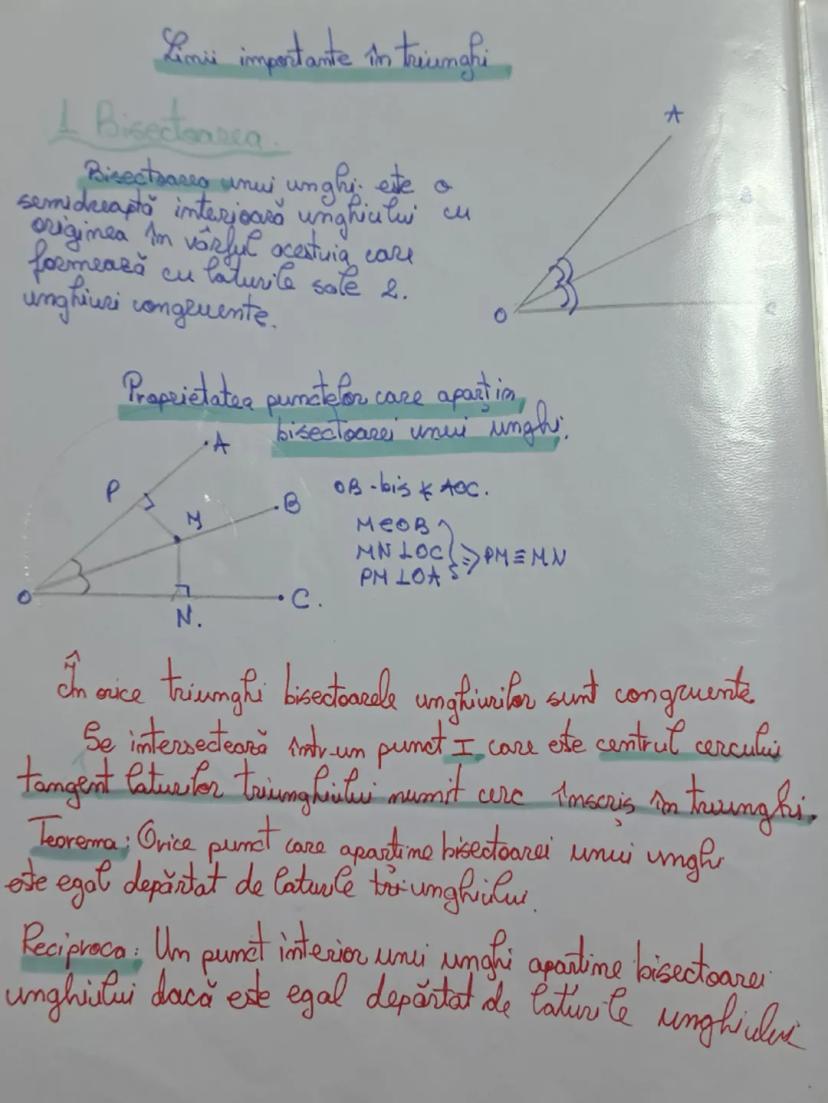 Linii importante în triunghi
1 Bisectoarea.
Bisectoarea unui unghi este o
semidreaptă interioară unghiului cu
originea în vârful acestuia care
formează cu laturile sale 2.
unghiuri congruente.
A
B
O
C
Proprietatea punctelor care aparțin
bisectoarei unui unghi.
A
P
M
B
O
N.
C.
OB-bis ∢ AOC.
M∈OB
MN⊥OC ⇒ PM≡MN
PM⊥OA
În orice triunghi bisectoarele unghiurilor sunt congruente
Se intersectează într-un punct I, care este centrul cercului
tangent laturilor triunghiului numit cerc înscris în triunghi.
Teorema: Orice punct care aparține bisectoarei unui unghi
este egal depărtat de laturile triunghiului.
Reciproca: Un punct interior unui unghi aparține bisectoarei
unghiului dacă este egal depărtat de laturile unghiului